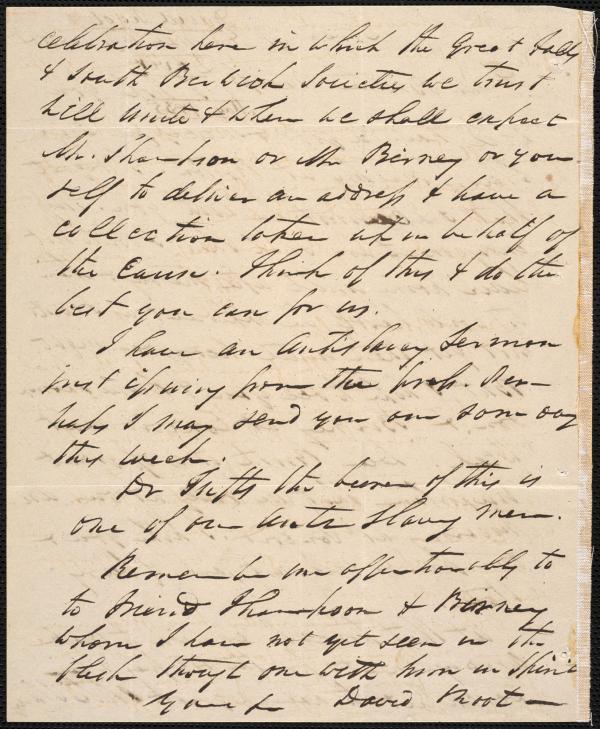 celebration here in which the Great Falls
& South Berwick Societies we trust
will unite & when we shall expect
Mr. Thompson or Mr Birney or your
self to deliver an address & have a
collection taken up in behalf of
the cause. Think of this & do the
best you can for us.
I have an Antislavery Sermon
just issuing from the press. Per-
haps I may send you one some day
this week.
Dr Tufts the bearer of this is
one of our Anti Slavery men.
Remember me affectionately to
to friend Thompson & Birney
whom I have not yet seen in the
flesh though one with him in Spirit
Yours &c David Root